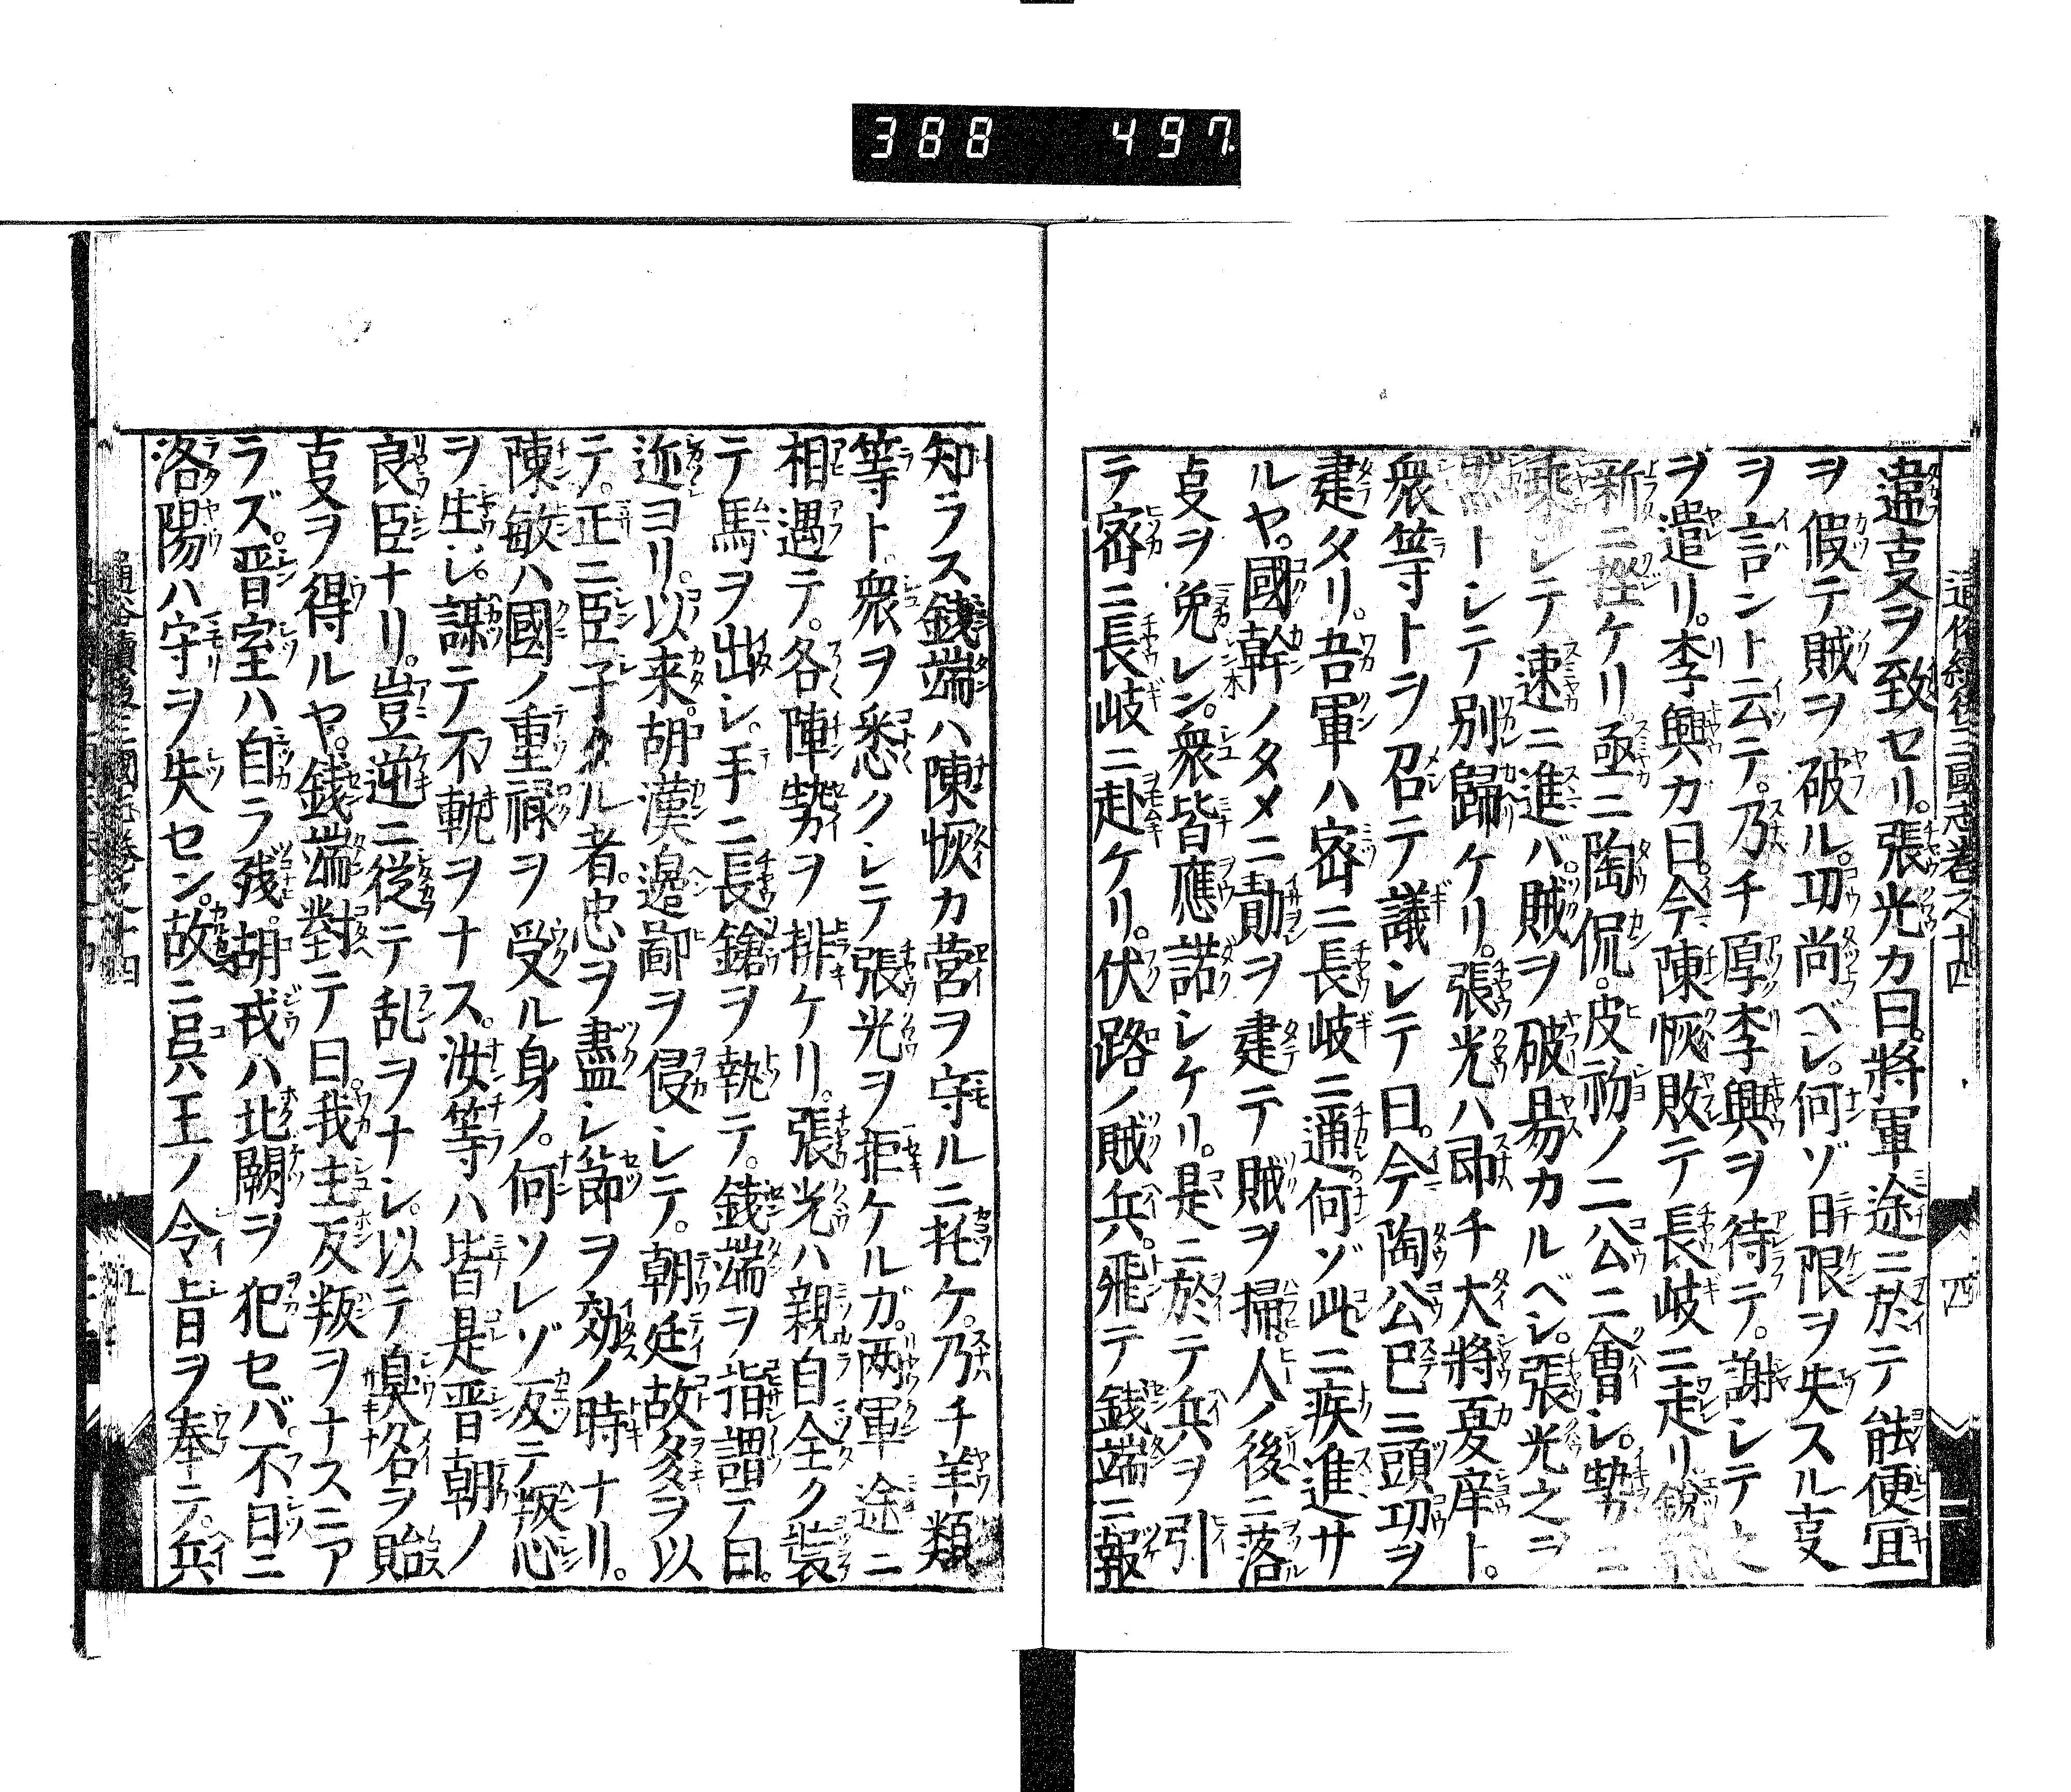 388 497
通俗續後三國志巻之十四 四
違叓ヲ致セリ。張光カ曰。將軍途ニ於テ能便宜
ヲ假テ賊ヲ破ル。功尚ベシ。何ゾ日限ヲ失スル叓
ヲ言ント云テ。乃チ厚李興ヲ待テ。謝シテ之
ヲ遣リ。李興ガ曰。今陳恢敗テ長岐ニ走リ鋭
新ニ挫ケリ亟ニ陶侃。皮初ノ二公ニ會シ。勢ニ
乘シテ速ニ進バ。賊ヲ破易カルベシ。張光之ヲ
然トシテ別歸ケリ。張光ハ即チ大將夏庠ト。
衆等トヲ召テ議シテ曰。今陶公已ニ頭功ヲ
建タリ。吾軍ハ密ニ長岐ニ適何ゾ此ニ疾進サ
ルヤ。國幹ノタメニ勛ヲ建テ賊ヲ掃。人ノ後ニ落
叓ヲ免レン。衆皆應諾シケリ。是ニ於テ兵ヲ引
テ密ニ長岐ニ赴ケリ。伏路ノ賊兵。飛テ銭端ニ報
知ラス銭端ハ陳恢カ営ヲ守ルニ托ケ。乃チ羊類
等ト衆ヲ悉クシテ張光ヲ拒ケルガ。两軍途ニ
相遇テ。各陣勢ヲ排ケリ。張光ハ親自全ク裝
テ馬ヲ出シ。手ニ長鎗ヲ執テ。銭端ヲ指謂テ曰。
迩ヨリ。以来胡漢邊鄙ヲ侵シテ。朝廷故多ヲ以
テ。正ニ臣子タル者。忠ヲ盡シ節ヲ効ノ時ナリ。
陳敏ハ國ノ重禄ヲ受ル身ノ。何ソレゾ反テ叛心
ヲ生シ。謀テ不軌ヲナス。汝等ハ皆是晋朝ノ
良臣ナリ。豈逆ニ從テ乱ヲナシ。以テ臭名ヲ貽
叓ヲ得ルヤ。銭端對テ曰。我主反叛ヲナスニア
ラズ。晋室ハ自ラ残。胡戎ハ北闕ヲ犯セバ。不日ニ
洛陽ハ守ヲ失セン。故ニ呉王ノ令旨ヲ奉テ。兵
通俗續後三國志巻之十四